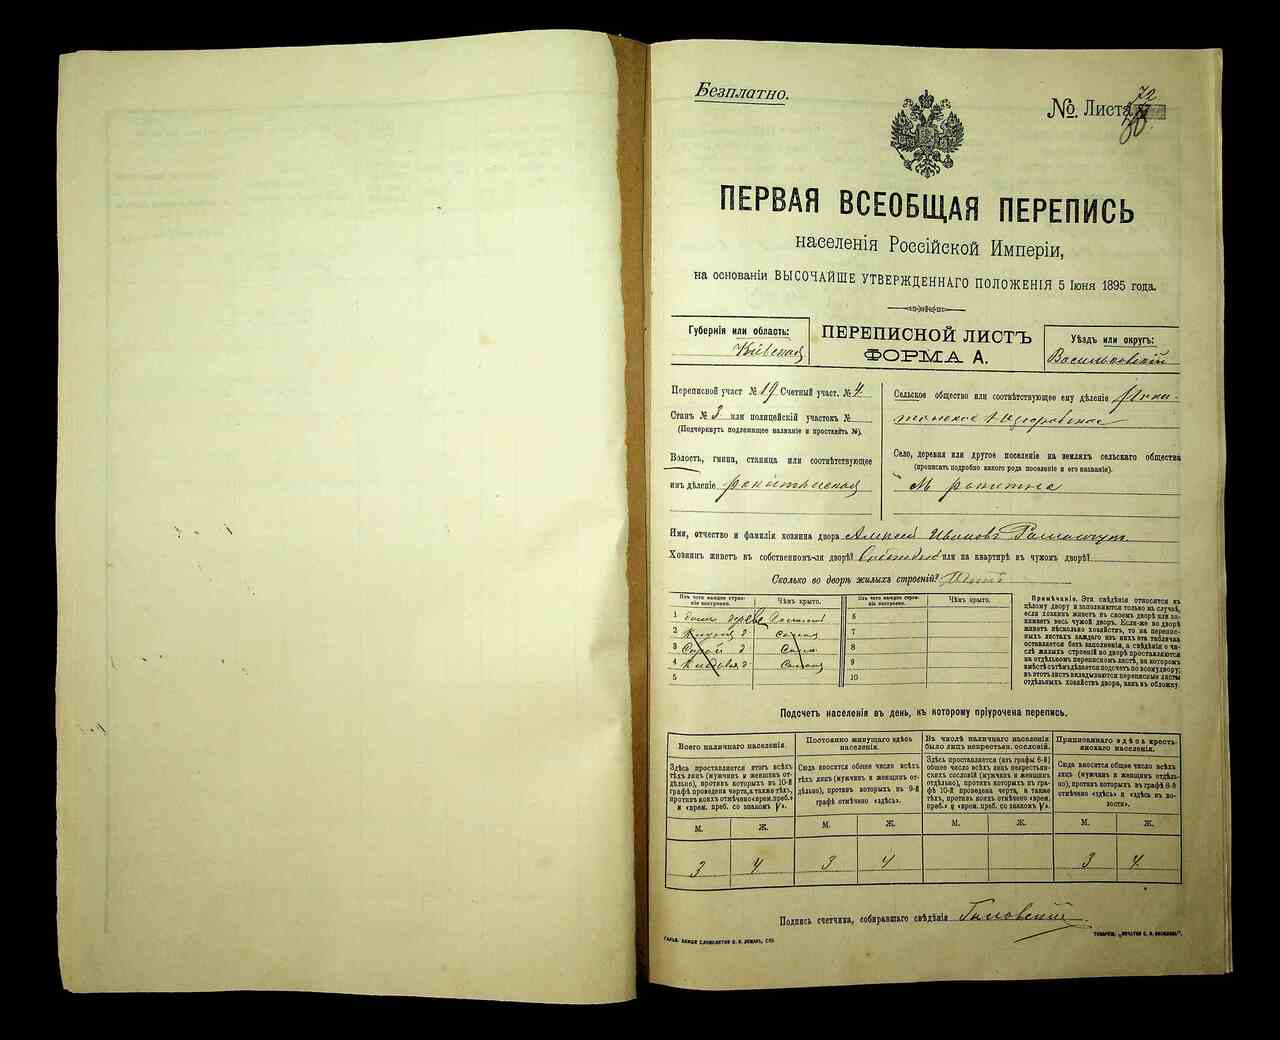 Безплатно.
№ Листа 72
ПЕРВАЯ ВСЕОБЩАЯ ПЕРЕПИСЬ
населенія Россійской Имперіи,
на основаніи ВЫСОЧАЙШЕ УТВЕРЖДЕННАГО ПОЛОЖЕНІЯ 5 Іюня 1895 года.
Губернія или область:
Кіевская
ПЕРЕПИСНОЙ ЛИСТЪ
ФОРМА А.
Уѣздъ или округъ:
Васильковскій
Переписной участ. № 19 Счетный участ. № 4.
Станъ № 3 или полицейскій участокъ №
(Подчеркнуть подлежащее названіе и проставить №).
Волость, гмина, станица или соотвѣтствующее
имъ дѣленіе ракитянская
Сельское общество или соотвѣтствующее ему дѣленіе
Село, деревня или другое поселеніе на земляхъ сельскаго общества
(прописать подробно какого рода поселеніе и его названіе).
М ракитна
Имя, отчество и фамилія хозяина двора Алексѣй Ивановъ
Хозяинъ живетъ въ собственномъ-ли дворѣ? или на квартирѣ въ чужомъ дворѣ?
Сколько во дворѣ жилыхъ строеній?
Изъ чего каждое строе-
ніе построено.
Чѣмъ крыто.
Изъ чего каждое строе-
ніе построено.
Чѣмъ крыто.
1
2
3
4
5
6
7
8
9
10
Примѣчаніе. Эта свѣдѣнія относятся къ
цѣлому двору и заполняются только въ случаѣ,
если хозяинъ живетъ въ своемъ дворѣ или за-
нимаетъ весь чужой дворъ. Если-же во дворѣ
живетъ нѣсколько хозяйствъ, то на перепис-
ныхъ листахъ каждаго изъ нихъ эта табличка
оставляется безъ заполненія, а свѣдѣнія о чи-
слѣ жилыхъ строеній во дворѣ проставляются
на отдѣльномъ переписномъ листѣ, на которомъ
вмѣстѣ съ тѣмъ дѣлается подсчетъ по всему двору;
въ этотъ листъ вкладываются переписные листы
отдѣльныхъ хозяйствъ двора, какъ въ обложку.
Подсчетъ населенія въ день, къ которому пріурочена перепись.
Всего наличнаго населенія.
Постоянно живущаго здѣсь
населенія.
Въ числѣ наличнаго населенія
было лицъ некрестьян. сословій.
Приписаннаго здѣсь кресть-
янскаго населенія.
Здѣсь проставляется итогъ всѣхъ
тѣхъ лицъ (мужчинъ и женщинъ от-
дѣльно), противъ которыхъ въ 10-й
графѣ проведена черта, а также тѣхъ,
противъ коихъ отмѣчено «врем. преб.»
и «врем. преб. со знакомъ V».
Сюда вносится общее число всѣхъ
тѣхъ лицъ (мужчинъ и женщинъ от-
дѣльно), противъ которыхъ въ 9-й
графѣ отмѣчено «здѣсь».
Здѣсь проставляется (изъ графы 6-й)
общее число всѣхъ лицъ некрестьян-
скихъ сословій (мужчинъ и женщинъ
отдѣльно), противъ которыхъ въ гра-
фѣ 10-й проведена черта, а также
тѣхъ, противъ коихъ отмѣчено «врем.
преб.» и «врем. преб. со знакомъ V».
Сюда вносится общее число всѣхъ
лицъ (мужчинъ и женщинъ отдѣль-
но), противъ которыхъ въ графѣ 8-й
отмѣчено «здѣсь» и «здѣсь въ во-
лости».
М. Ж. М. Ж. М. Ж. М. Ж.
3 4 3 4 3 4
Подпись счетчика, собиравшаго свѣдѣнія